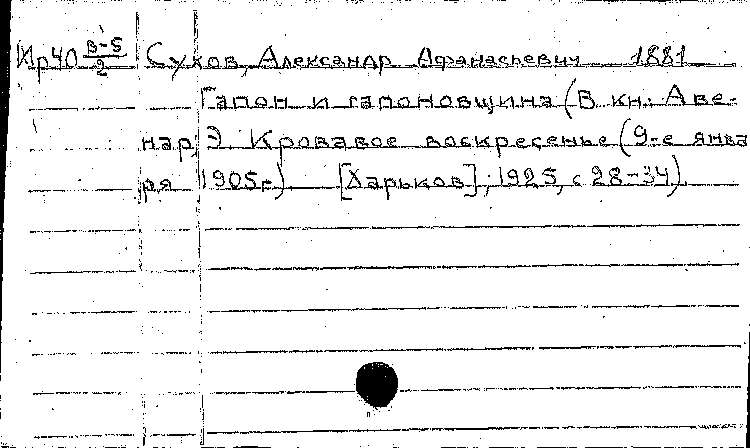 Ир40 В-5/2 Сухов, Александр Афанасьевич 1881
Гапон и гапоновщина (В кн.: Аве-
нар, Э. Кровавое воскресенье (9-е янва
ря 1905г.). [Харьков], 1925, с 28-34).